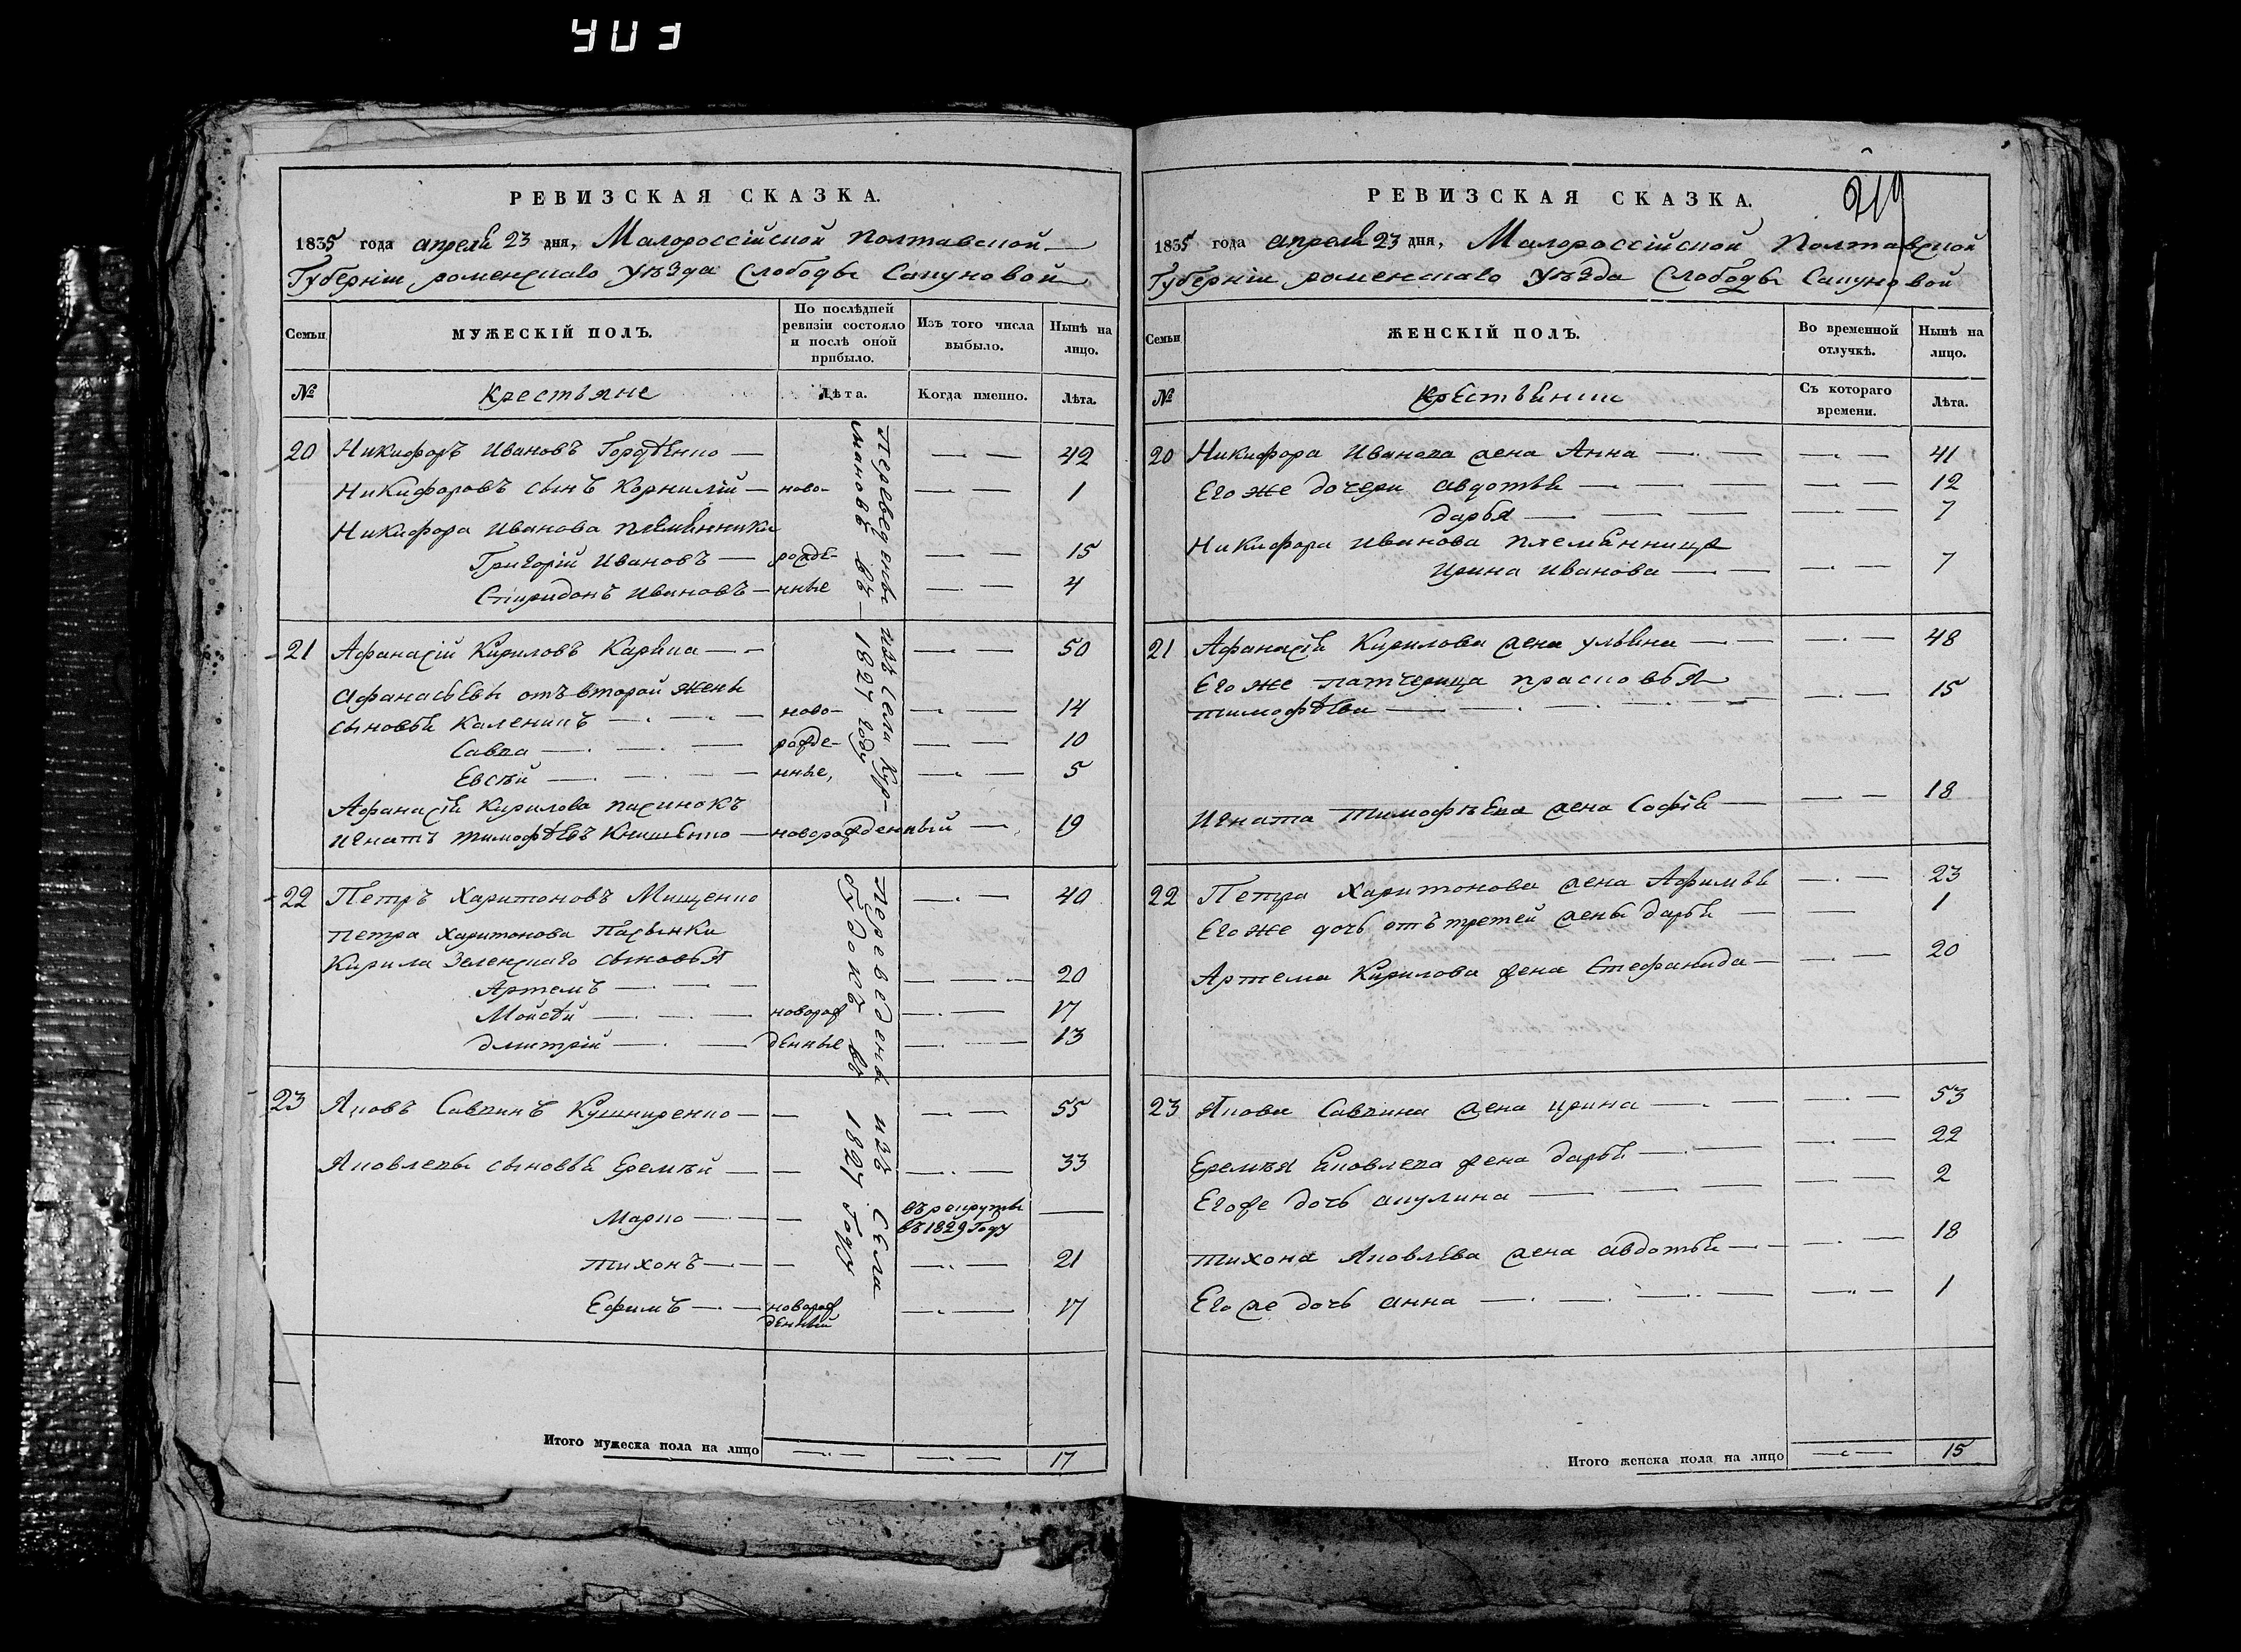 219
РЕВИЗСКАЯ СКАЗКА.
1835 года апреля 23 дня, Малороссійской Полтавской
Губерніи роменскаго Уѣзда Слободы Сапуновой
Семьи
МУЖЕСКІЙ ПОЛЪ.
По послѣдней ревизіи состояло и послѣ оной прибыло.
Изъ того числа выбыло.
Нынѣ на лицо.
№
Крестьяне
Лѣта.
Когда именно.
Лѣта.
Переведены изъ села Кур-
мановъ въ 1827 году
20 Никифоръ Ивановъ Гордѣенко 42
Никифоровъ сынъ Корнилій ново- 1
Никифора Иванова племянники
Григорій Ивановъ рожде- 15
Спиридонъ Ивановъ нные 4
21 Афанасій Кириловъ Каряка 50
Афанасьевы отъ второй жены
сыновья Каленикъ ново- 14
Савка рожде- 10
Евсѣй нные, 5
Афанасія Кирилова пасинокъ
Игнатъ Тимофѣевъ Книшенко новорожденный 19
Переведены изъ села
въ 1827 году
22 Петръ Харитоновъ Мищенко 40
Петра Харитонова Пасынки
Кирила Зеленскаго сыновья
Артемъ 20
Мойсѣй новорож 17
Дмитрій денные 13
23 Яковъ Савкинъ Кушниренко 55
Яковлевы сыновья Еремѣй 33
Марко въ рекруты
въ 1829 Году
Тихонъ 21
Ефимъ новорож 17
денный
Итого мужеска пола на лицо 17
РЕВИЗСКАЯ СКАЗКА.
1835 года апреля 23 дня, Малороссійской Полтавской
Губерніи роменскаго Уѣзда Слободы Сапуновой
Семьи
ЖЕНСКІЙ ПОЛЪ.
Во временной отлучкѣ.
Нынѣ на лицо.
№
Крестьянки
Съ котораго времени.
Лѣта.
20 Никифора Иванова жена Анна 41
Его же дочери авдотья 12
дарья 7
Никифора Иванова племянница
Ирина Иванова 7
21 Афанасія Кирилова жена ульяна 48
Его же патчерица прасковья
тимофѣева 15
Игната Тимофѣева жена Софія 18
22 Петра Харитонова жена Афимья 23
Его же дочь отъ третей жены дарья 1
Артема Кирилова жена Стефанида 20
23 Якова Савкина жена ирина 53
Еремѣя Яковлева жена дарья 22
Его же дочь акулина 2
тихона Яковлева жена авдотья 18
Его же дочь анна 1
Итого женска пола на лицо 15